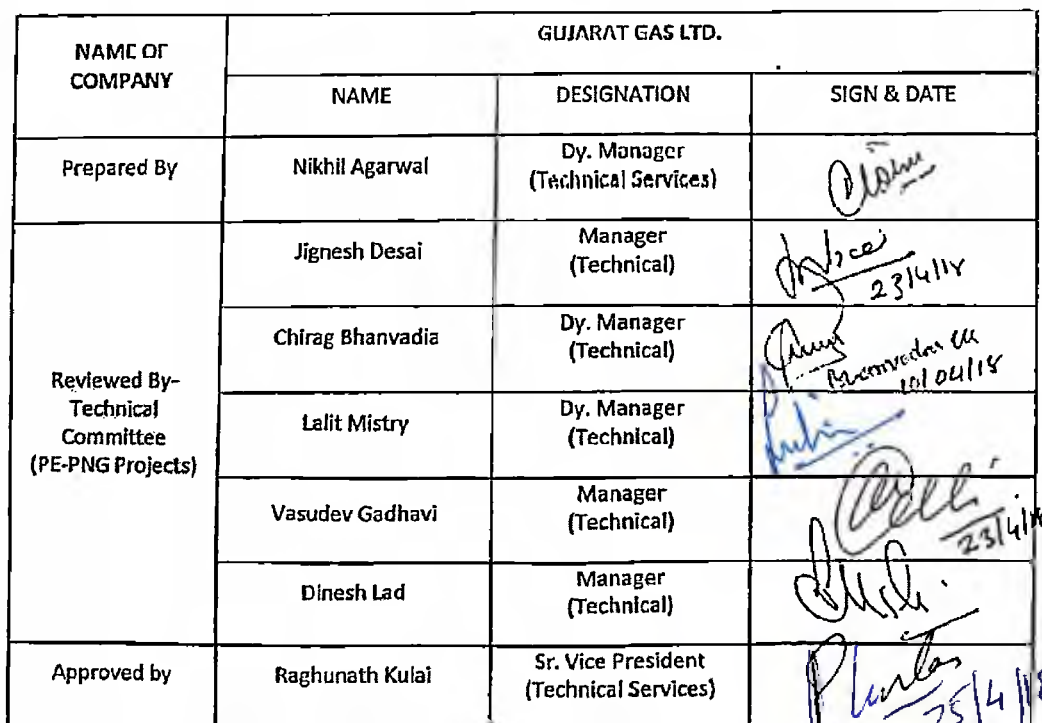 NAME OF
COMPANY
GUJARAT GAS LTD.
NAME
DESIGNATION
SIGN & DATE
Prepared By
Nikhil Agarwal
Dy. Manager
(Technical Services)
Reviewed By-
Technical
Committee
(PE-PNG Projects)
Jignesh Desai
Manager
(Technical)
23/4/18
Chirag Bhanvadia
Dy. Manager
(Technical)
10/04/18
Lalit Mistry
Dy. Manager
(Technical)
Vasudev Gadhavi
Manager
(Technical)
23/4/18
Dinesh Lad
Manager
(Technical)
Approved by
Raghunath Kulai
Sr. Vice President
(Technical Services)
25/4/18